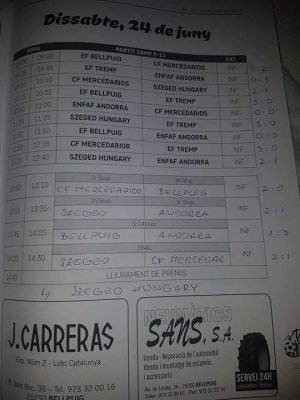 Dissabte, 24 de juny
HORA PARTIT CAMP F-11 CAT.
09:20 EF BELLPUIG CF MERCEDARIOS INF 0-2
09:45 EF TREMP ENFAF ANDORRA INF 0:3
10:10 CF MERCEDARIOS SZEGED HUNGARY INF 2:1
EF BELLPUIG EF TREMP INF 3:0
11:00 ENFAF ANDORRA CF MERCEDARIOS INF 3:0
11:25 SZEGED HUNGARY EF TREMP INF 3:0
11:50 EF BELLPUIG ENFAF ANDORRA INF 0:3
12:15 CF MERCEDARIOS EF TREMP INF 3:0
12:40 SZEGED HUNGARY ENFAF ANDORRA INF 2:1
12:50 13:10 CF MERCEDARIOS BELLPUIG INF 2:0
13:35 SZEGED ANDORRA INF 2:1
14:05 BELLPUIG ANDORRA INF 1:3
FINAL
14:10 14:30 SZEGED CF MERCEDAR INF 2:1
14:40 LLIURAMENT DE PREMIS
1) SZEGED HUNGARY
J. CARRERAS
Exp. Núm 2 - Loto Catalunya
Pl. Sant Roc, 36 - Tel. 973 32 00 16
25250 BELLPUIG
NEUMÀTICS
SANS, S.A.
Venda - Reparació de l'automòbil
Venda i muntatge de recanvis
i accessoris
SERVEI 24H
25250 BELLPUIG